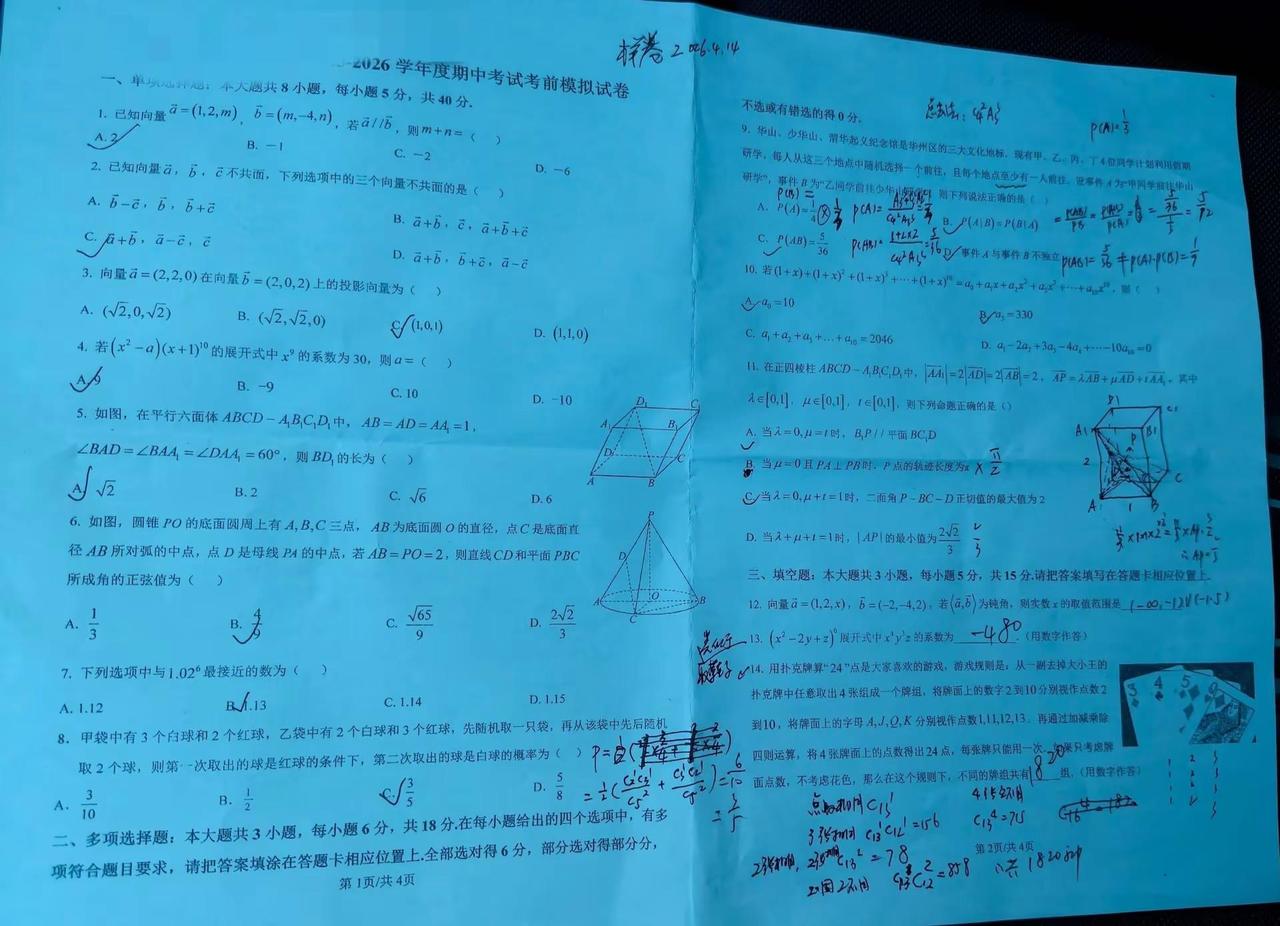 样卷 2026.4.14
-2026 学年度期中考试考前模拟试卷
一、单项选择题：本大题共 8 小题，每小题 5 分，共 40 分．
1. 已知向量 a⃗=(1,2,m)，b⃗=(m,-4,n)，若 a⃗//b⃗，则 m+n=（ ）
A. 2 B. －1 C. －2 D. －6
2. 已知向量 a⃗，b⃗，c⃗ 不共面，下列选项中的三个向量不共面的是（ ）
A. b⃗-c⃗，b⃗，b⃗+c⃗ B. a⃗+b⃗，c⃗，a⃗+b⃗+c⃗
C. a⃗+b⃗，a⃗-c⃗，c⃗ D. a⃗+b⃗，b⃗+c⃗，a⃗-c⃗
3. 向量 a⃗=(2,2,0) 在向量 b⃗=(2,0,2) 上的投影向量为（ ）
A. (√2,0,√2) B. (√2,√2,0) C. (1,0,1) D. (1,1,0)
4. 若 (x²-a)(x+1)¹⁰ 的展开式中 x⁹ 的系数为 30，则 a=（ ）
A. 9 B. －9 C. 10 D. －10
5. 如图，在平行六面体 ABCD-A₁B₁C₁D₁ 中，AB=AD=AA₁=1，
∠BAD=∠BAA₁=∠DAA₁=60°，则 BD₁ 的长为（ ）
A. √2 B. 2 C. √6 D. 6
D₁ C₁
A₁ B₁
D C
A B
6. 如图，圆锥 PO 的底面圆周上有 A,B,C 三点，AB 为底面圆 O 的直径，点 C 是底面直
径 AB 所对弧的中点，点 D 是母线 PA 的中点，若 AB=PO=2，则直线 CD 和平面 PBC
所成角的正弦值为（ ）
A. 1/3 B. 4/9 C. √65/9 D. 2√2/3
P
D
A O B
C
7. 下列选项中与 1.02⁶ 最接近的数为（ ）
A. 1.12 B. 1.13 C. 1.14 D. 1.15
8. 甲袋中有 3 个白球和 2 个红球，乙袋中有 2 个白球和 3 个红球，先随机取一只袋，再从该袋中先后随机
取 2 个球，则第一次取出的球是红球的条件下，第二次取出的球是白球的概率为（ ）
A. 3/10 B. 1/2 C. 3/5 D. 5/8
=6/10
=3/5
二、多项选择题：本大题共 3 小题，每小题 6 分，共 18 分.在每小题给出的四个选项中，有多
项符合题目要求，请把答案填涂在答题卡相应位置上.全部选对得 6 分，部分选对得部分分，
第 1页/共 4页
不选或有错选的得 0 分．
P(A)=1/3
9. 华山、少华山、渭华起义纪念馆是华州区的三大文化地标．现有甲、乙、丙、丁 4 位同学计划利用假期
研学，每人从这三个地点中随机选择一个前往，且每个地点至少有一人前往．设事件 A 为“甲同学前往华山
研学”，事件 B 为“乙同学前往少华山研学”，则下列说法正确的是（ ）
A. P(A)=1/4 B. P(A|B)=P(B|A)
C. P(AB)=5/36 D. 事件 A 与事件 B 不独立
P(AB)=5/36≠P(A)·P(B)=1/9
10. 若 (1+x)+(1+x)²+(1+x)³+⋯+(1+x)¹⁰=a₀+a₁x+a₂x²+a₃x³+⋯+a₁₀x¹⁰，则（ ）
A. a₀=10 B. a₃=330
C. a₁+a₂+a₃+…+a₁₀=2046 D. a₁-2a₂+3a₃-4a₄+⋯-10a₁₀=0
11. 在正四棱柱 ABCD-A₁B₁C₁D₁ 中，|AA₁|=2|AD|=2|AB|=2，AP=λAB+μAD+tAA₁，其中
λ∈[0,1]，μ∈[0,1]，t∈[0,1]，则下列命题正确的是（）
A. 当 λ=0,μ=t 时，B₁P//平面 BC₁D
B. 当 μ=0 且 PA⊥PB 时，P 点的轨迹长度为π × π/2
C. 当 λ=0,μ+t=1 时，二面角 P-BC-D 正切值的最大值为 2
D. 当 λ+μ+t=1 时，|AP| 的最小值为 2√2/3
三、填空题：本大题共 3 小题，每小题 5 分，共 15 分.请把答案填写在答题卡相应位置上．
12. 向量 a⃗=(1,2,x)，b⃗=(-2,-4,2)，若 ⟨a⃗,b⃗⟩ 为钝角，则实数 x 的取值范围是 (-∞,-1)∪(-1,5)
13. (x²-2y+z)⁶ 展开式中 x⁴y³z 的系数为 -480 .（用数字作答）
14. 用扑克牌算“24”点是大家喜欢的游戏，游戏规则是：从一副去掉大小王的
扑克牌中任意取出 4 张组成一个牌组，将牌面上的数字 2 到 10 分别视作点数 2
到10，将牌面上的字母 A,J,Q,K 分别视作点数 1,11,12,13．再通过加减乘除
四则运算，将 4 张牌面上的点数得出 24 点，每张牌只能用一次．如果只考虑牌
面点数，不考虑花色，那么在这个规则下，不同的牌组共有 1820 组．（用数字作答）
点数相同 C₁₃¹
4张全不同
C₁₃⁴=715
3张相同 C₁₃¹C₁₂¹=156
C₁₃²=78
=858
共 1820 种
第 2页/共 4页